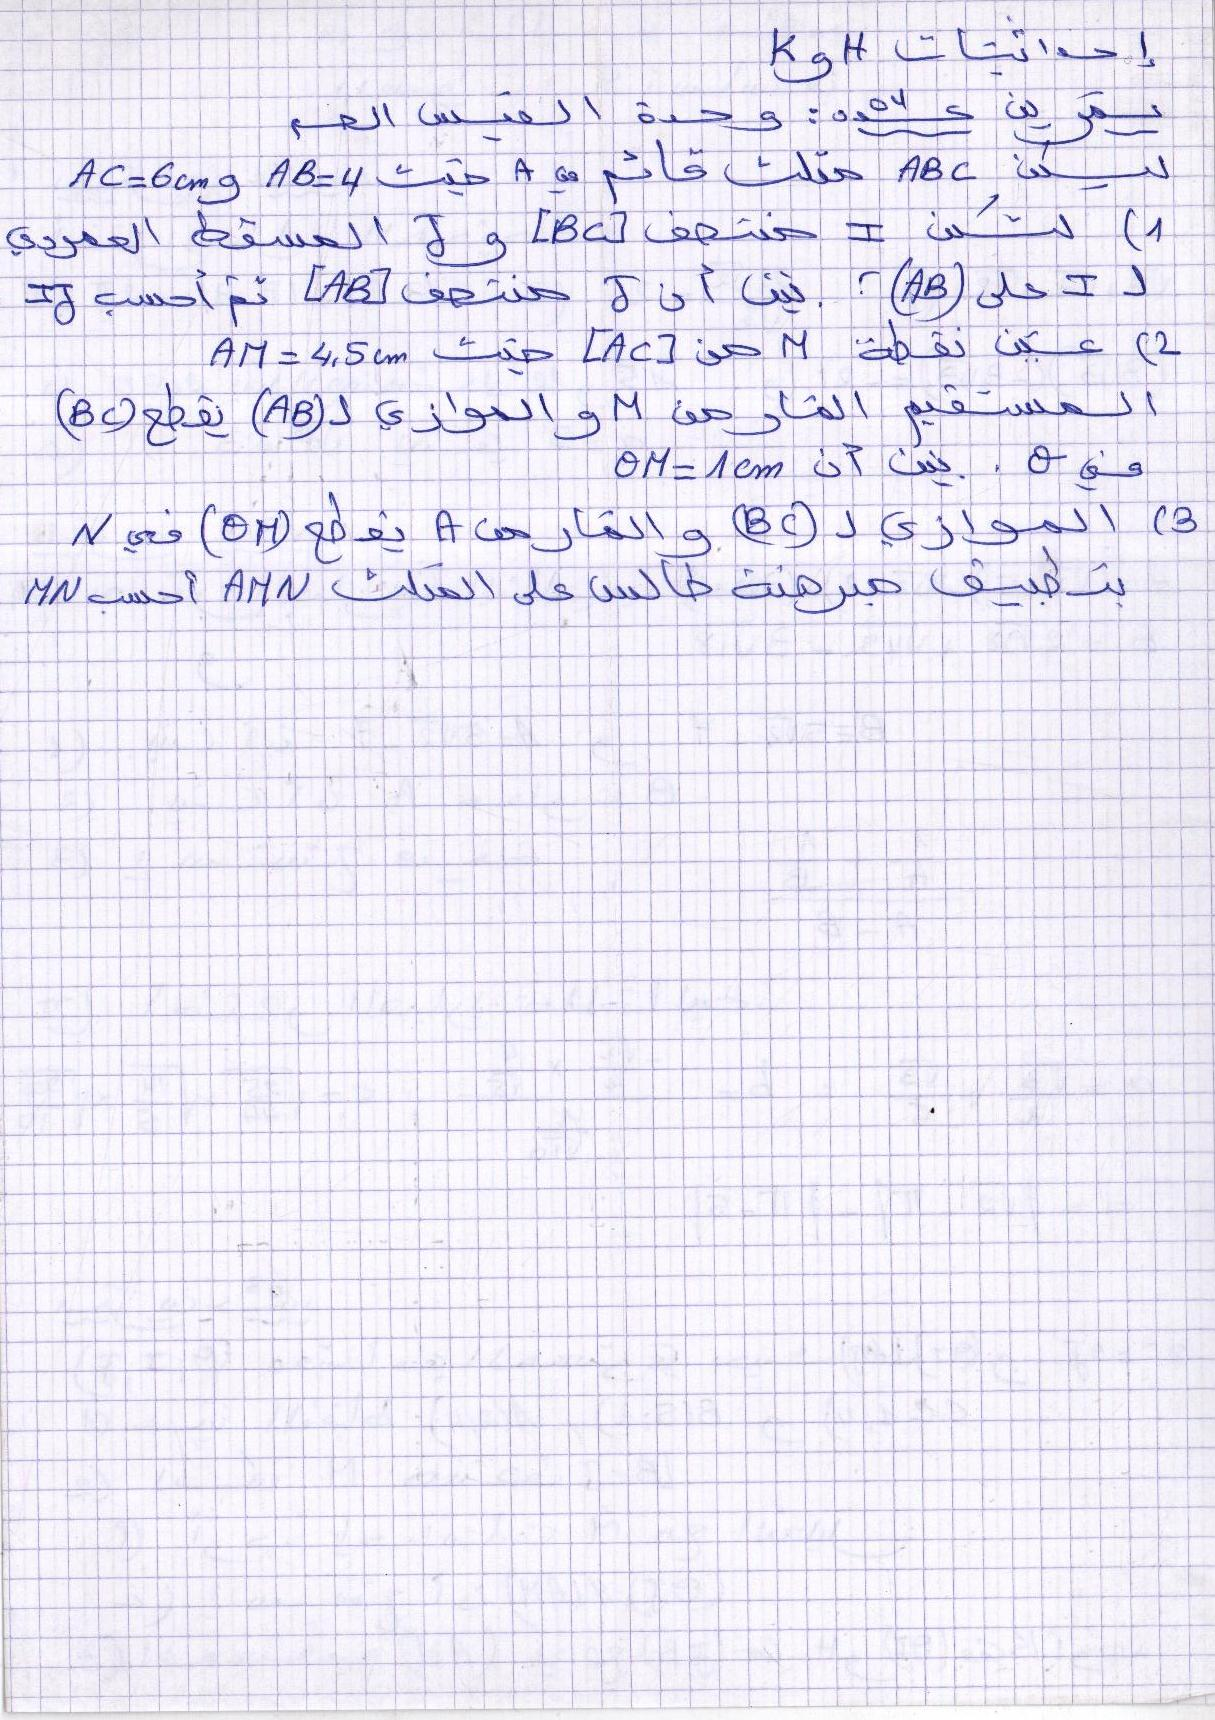 إحداثيات H و K
تمرين عدد 04: وحدة القيس الصم
ليكن ABC مثلث قائم في A حيث AB=4 و AC=6cm
1) لتكن I منتصف [BC] و J المسقط العمودي
لـ I على (AB)؟ . بيّن أن J منتصف [AB] ثمّ أحسب IJ
2) عيّن نقطة M من [AC] حيث AM = 4,5cm
المستقيم المار من M و الموازي لـ (AB) يقطع (BC)
في O . بيّن أن OM = 1cm
3) الموازي لـ (BC) و المار من A يقطع (OM) في N
بتطبيق مبرهنة طالس على المثلث AMN أحسب MN